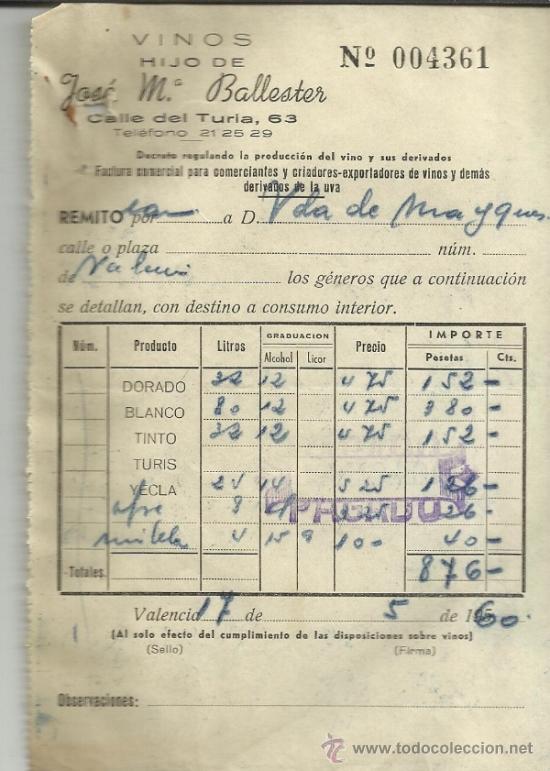 VINOS
HIJO DE
José Mª Ballester
Calle del Turia, 63
Teléfono 21 25 29
Nº 004361
Decreto regulando la producción del vino y sus derivados
Factura comercial para comerciantes y criadores-exportadores de vinos y demás
derivados de la uva
REMITO por a D. Vda de
calle o plaza núm.
de los géneros que a continuación
se detallan, con destino a consumo interior.
Núm. Producto Litros GRADUACION Alcohol Licor Precio IMPORTE Pesetas Cts.
DORADO 32 12 475 152 -
BLANCO 80 12 475 380 -
TINTO 32 12 475 152 -
TURIS
YECLA 14 525 126 -
8 26 -
mistela 4 15 9 100 40 -
Totales. 876 -
PAGADO
Valencia 17 de 5 de 1960.
(Al solo efecto del cumplimiento de las disposiciones sobre vinos)
(Sello) (Firma)
Observaciones:
todocoleccion.net
www.todocoleccion.net